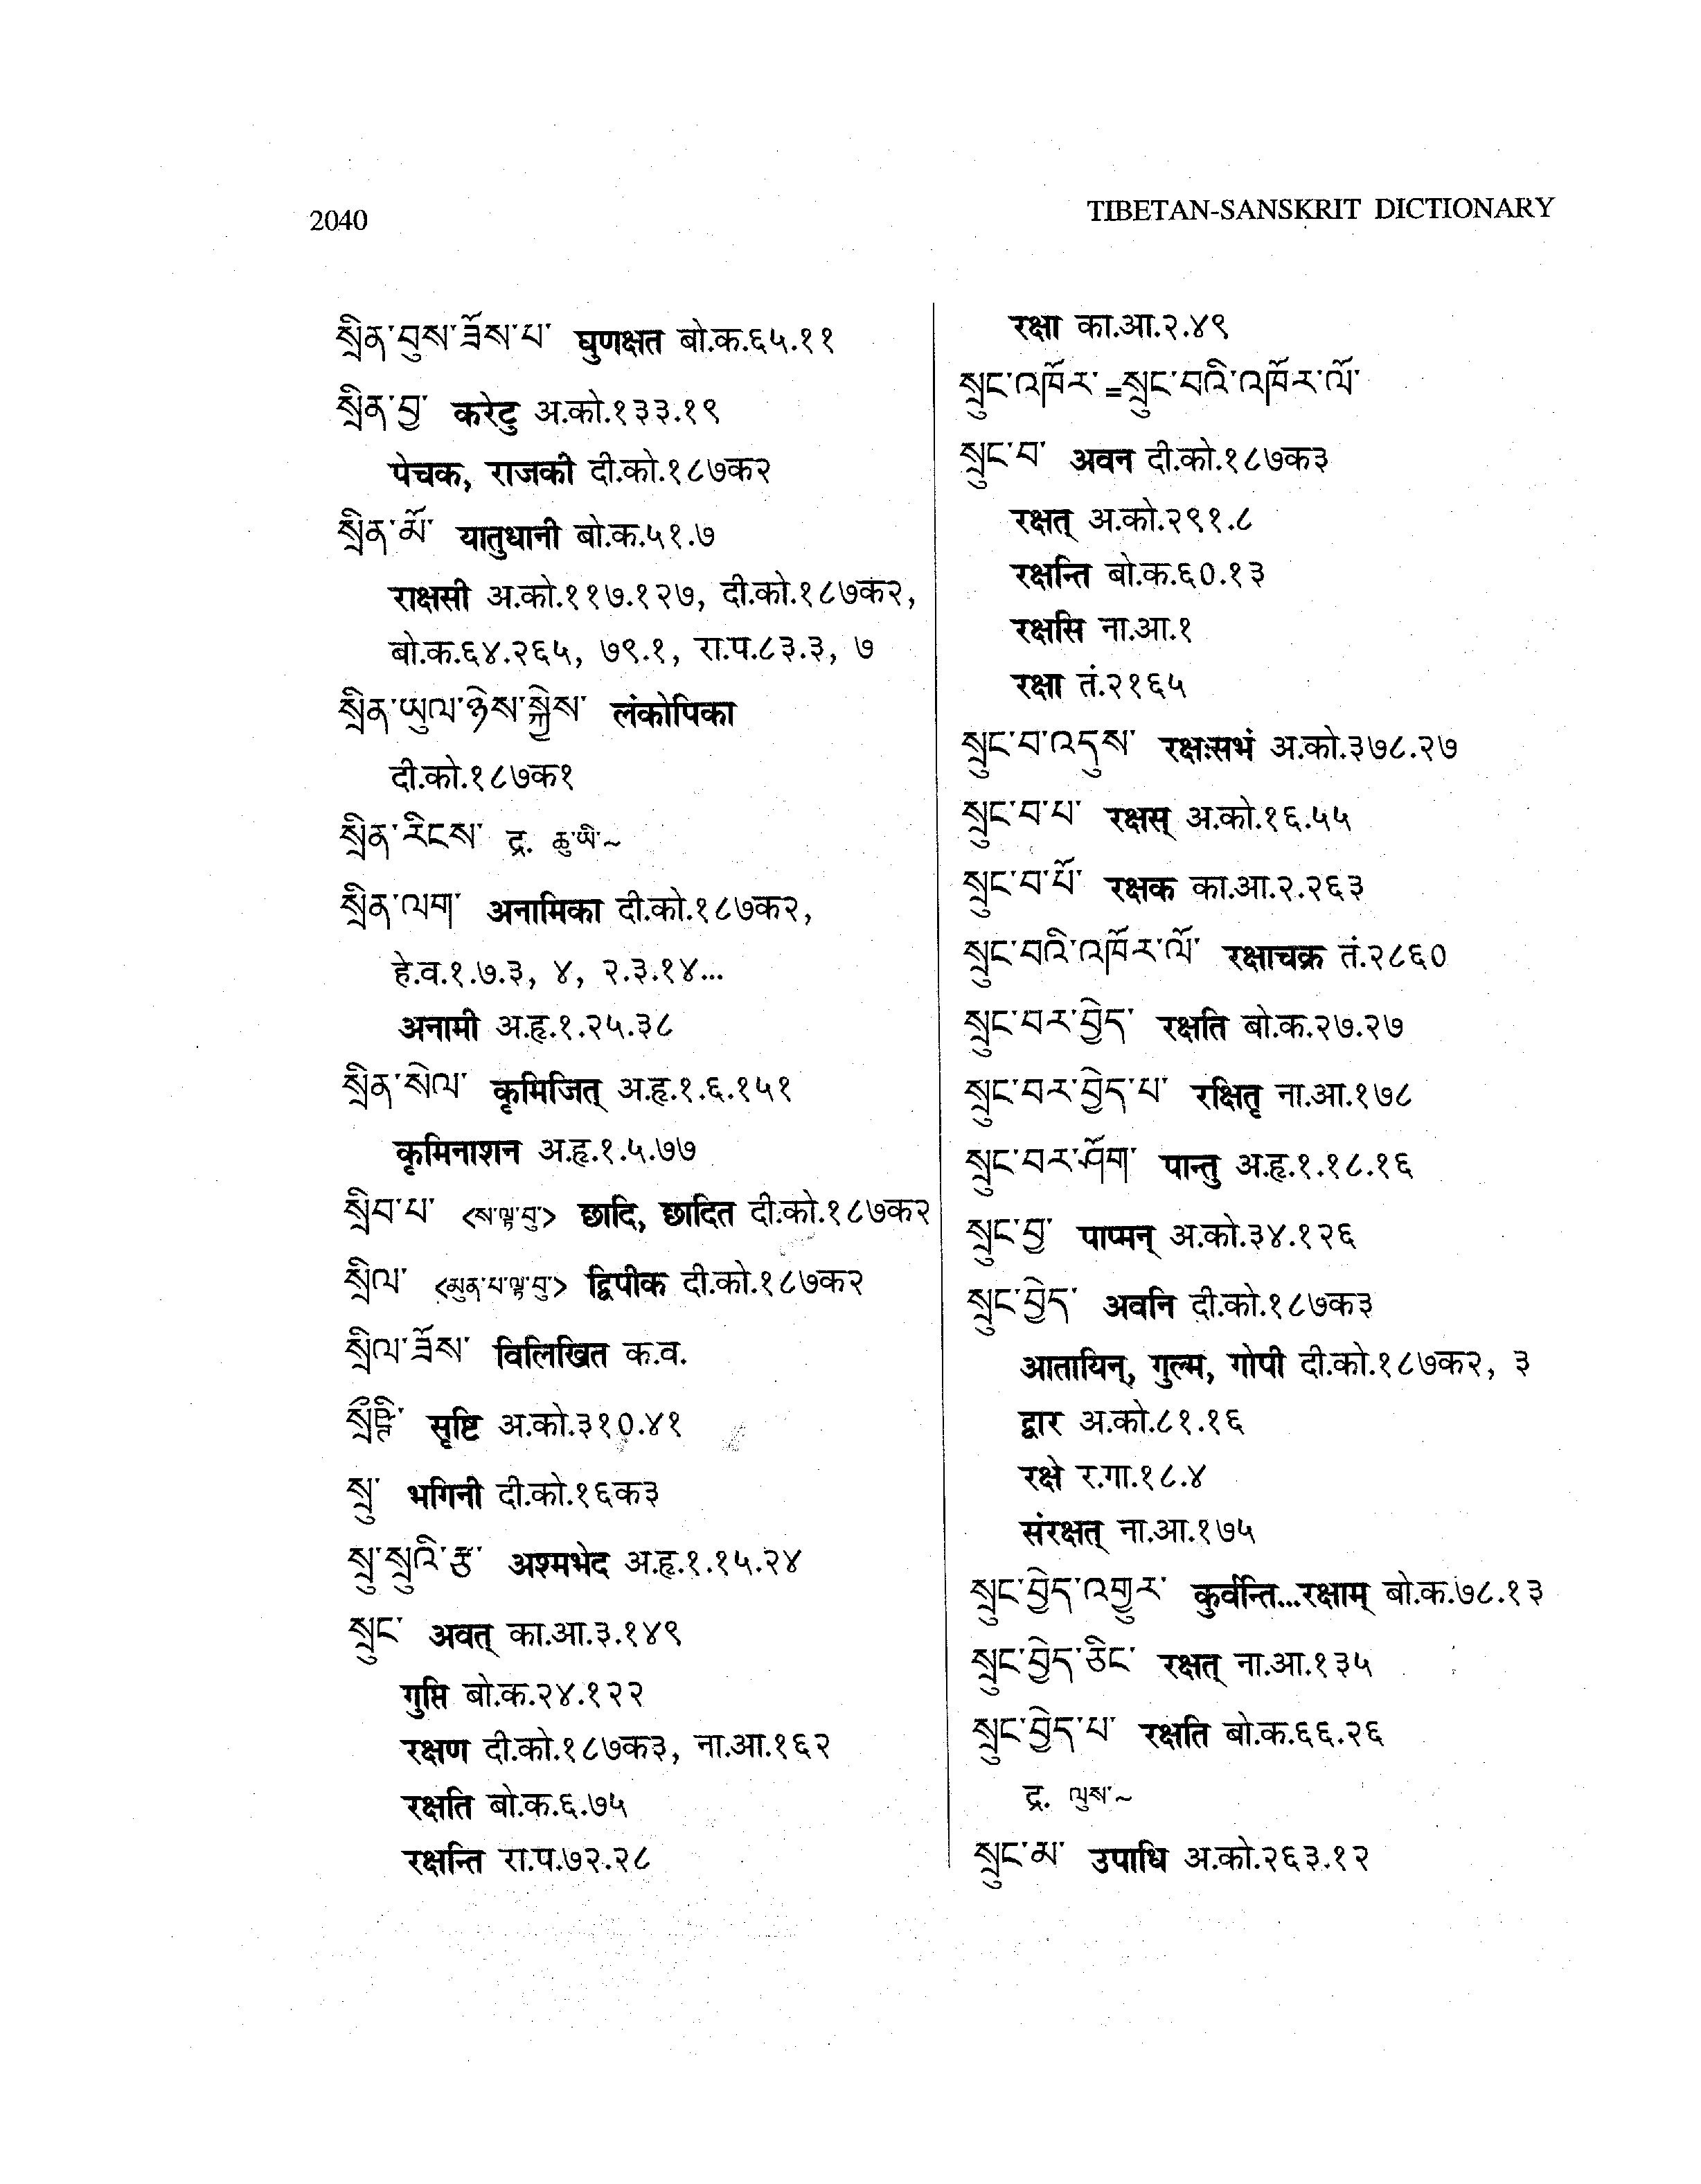 2040
TIBETAN-SANSKRIT DICTIONARY
སྲིན་བུས་ཟོས་པ་ घुणक्षत बो.क.६५.११
སྲིན་བྱ་ करेटु अ.को.१३३.१९
पेचक, राजकी दी.को.१८७क२
སྲིན་མོ་ यातुधानी बो.क.५१.७
राक्षसी अ.को.११७.१२७, दी.को.१८७क२,
बो.क.६४.२६५, ७९.१, रा.प.८३.३, ७
སྲིན་ཡུལ་ཉེས་སྐྱེས་ लंकोपिका
दी.को.१८७क१
སྲིན་རིངས་ द्र. ཆུ་ཡི་~
སྲིན་ལག་ अनामिका दी.को.१८७क२,
हे.व.१.७.३, ४, २.३.१४...
अनामी अ.हृ.१.२५.३८
སྲིན་སེལ་ कृमिजित् अ.हृ.१.६.१५१
कृमिनाशन अ.हृ.१.५.७७
སྲིབ་པ་ <ས་ལྟ་བུ> छादि, छादित दी.को.१८७क२
སྲིལ་ <མུན་པ་ལྟ་བུ> द्विपीक दी.को.१८७क२
སྲིལ་ཟོས་ विलिखित क.व.
सृष्टि अ.को.३१०.४१
སྲུ་ भगिनी दी.को.१६क३
སྲུ་སྲུའི་རྩ་ अश्मभेद अ.हृ.१.१५.२४
སྲུང་ अवत् का.आ.३.१४९
गुप्ति बो.क.२४.१२२
रक्षण दी.को.१८७क३, ना.आ.१६२
रक्षति बो.क.६.७५
रक्षन्ति रा.प.७२.२८
रक्षा का.आ.२.४९
སྲུང་འཁོར་=སྲུང་བའི་འཁོར་ལོ་
སྲུང་བ་ अवन दी.को.१८७क३
रक्षत् अ.को.२९१.८
रक्षन्ति बो.क.६०.१३
रक्षसि ना.आ.१
रक्षा तं.२१६५
སྲུང་བ་འདུས་ रक्षःसभं अ.को.३७८.२७
སྲུང་བ་པ་ रक्षस् अ.को.१६.५५
སྲུང་བ་པོ་ रक्षक का.आ.२.२६३
སྲུང་བའི་འཁོར་ལོ་ रक्षाचक्र तं.२८६०
སྲུང་བར་བྱེད་ रक्षति बो.क.२७.२७
སྲུང་བར་བྱེད་པ་ रक्षितृ ना.आ.१७८
སྲུང་བར་ཤོག་ पान्तु अ.हृ.१.१८.१६
སྲུང་བྱ་ पाप्मन् अ.को.३४.१२६
སྲུང་བྱེད་ अवनि दी.को.१८७क३
आतायिन्, गुल्म, गोपी दी.को.१८७क२, ३
द्वार अ.को.८१.१६
रक्षे र.गा.१८.४
संरक्षत् ना.आ.१७५
སྲུང་བྱེད་འགྱུར་ कुर्वन्ति...रक्षाम् बो.क.७८.१३
སྲུང་བྱེད་ཅིང་ रक्षत् ना.आ.१३५
སྲུང་བྱེད་པ་ रक्षति बो.क.६६.२६
द्र. ལུས་~
སྲུང་མ་ उपाधि अ.को.२६३.१२